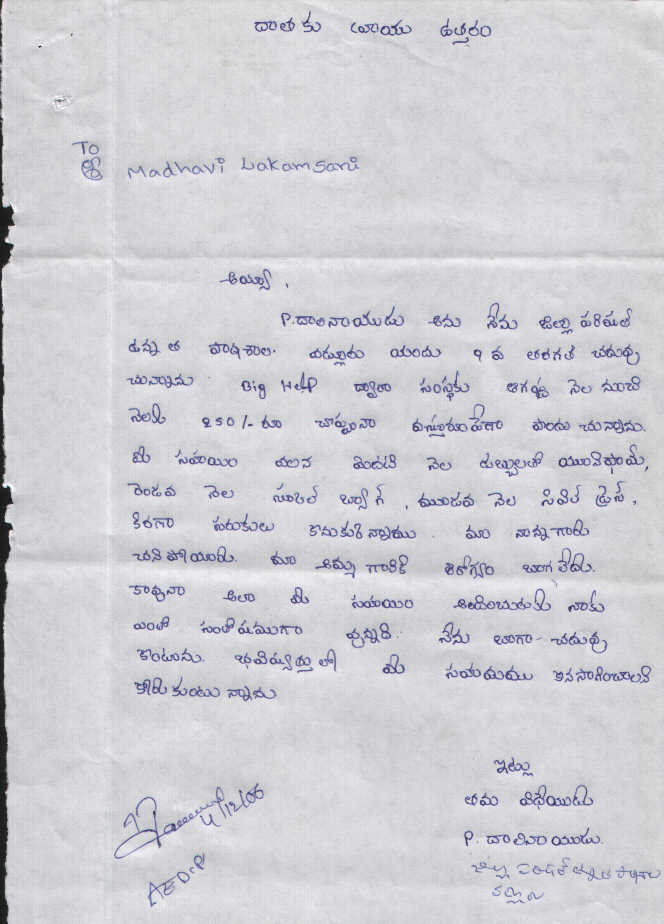 దాతకు వ్రాయు ఉత్తరం
To
శ్రీ Madhavi Lakamsani
అయ్యా,
P. దాలినాయుడు అను నేను జిల్లా పరిషత్
ఉన్నత పాఠశాల. యందు 9 వ తరగతి చదువు
చున్నాను. Big Help ద్వారా సంస్థకు ఆగష్టు నెల నుంచి
నెలకి 250/- రూ చొప్పునా పొందు చున్నాను.
మీ సహయం వలన మొదటి నెల డబ్బులతో యూనిఫామ్,
రెండవ నెల స్కూల్ బ్యాగ్, మూడవ నెల సివిల్ డ్రెస్,
కిరణా సరుకులు కొనుకున్నాము. మా నాన్న గారు
చనిపోయారు. మా అమ్మ గారికి ఆరోగ్యం బాగ లేదు.
కావునా అలా మీ సహయం అందించుటకు నాకు
ఎంతో సంతోషముగా వున్నది. నేను బాగా చదువు
కొంటాను. భవిష్యత్తులో మీ సహయము కొనసాగించాలని
కోరుకుంటున్నాను
ఇట్లు
తమ విధేయుడు
P. దాలినాయుడు.
జిల్లా పరిషత్ ఉన్నత పాఠశాల
4/12/06
AEDCP